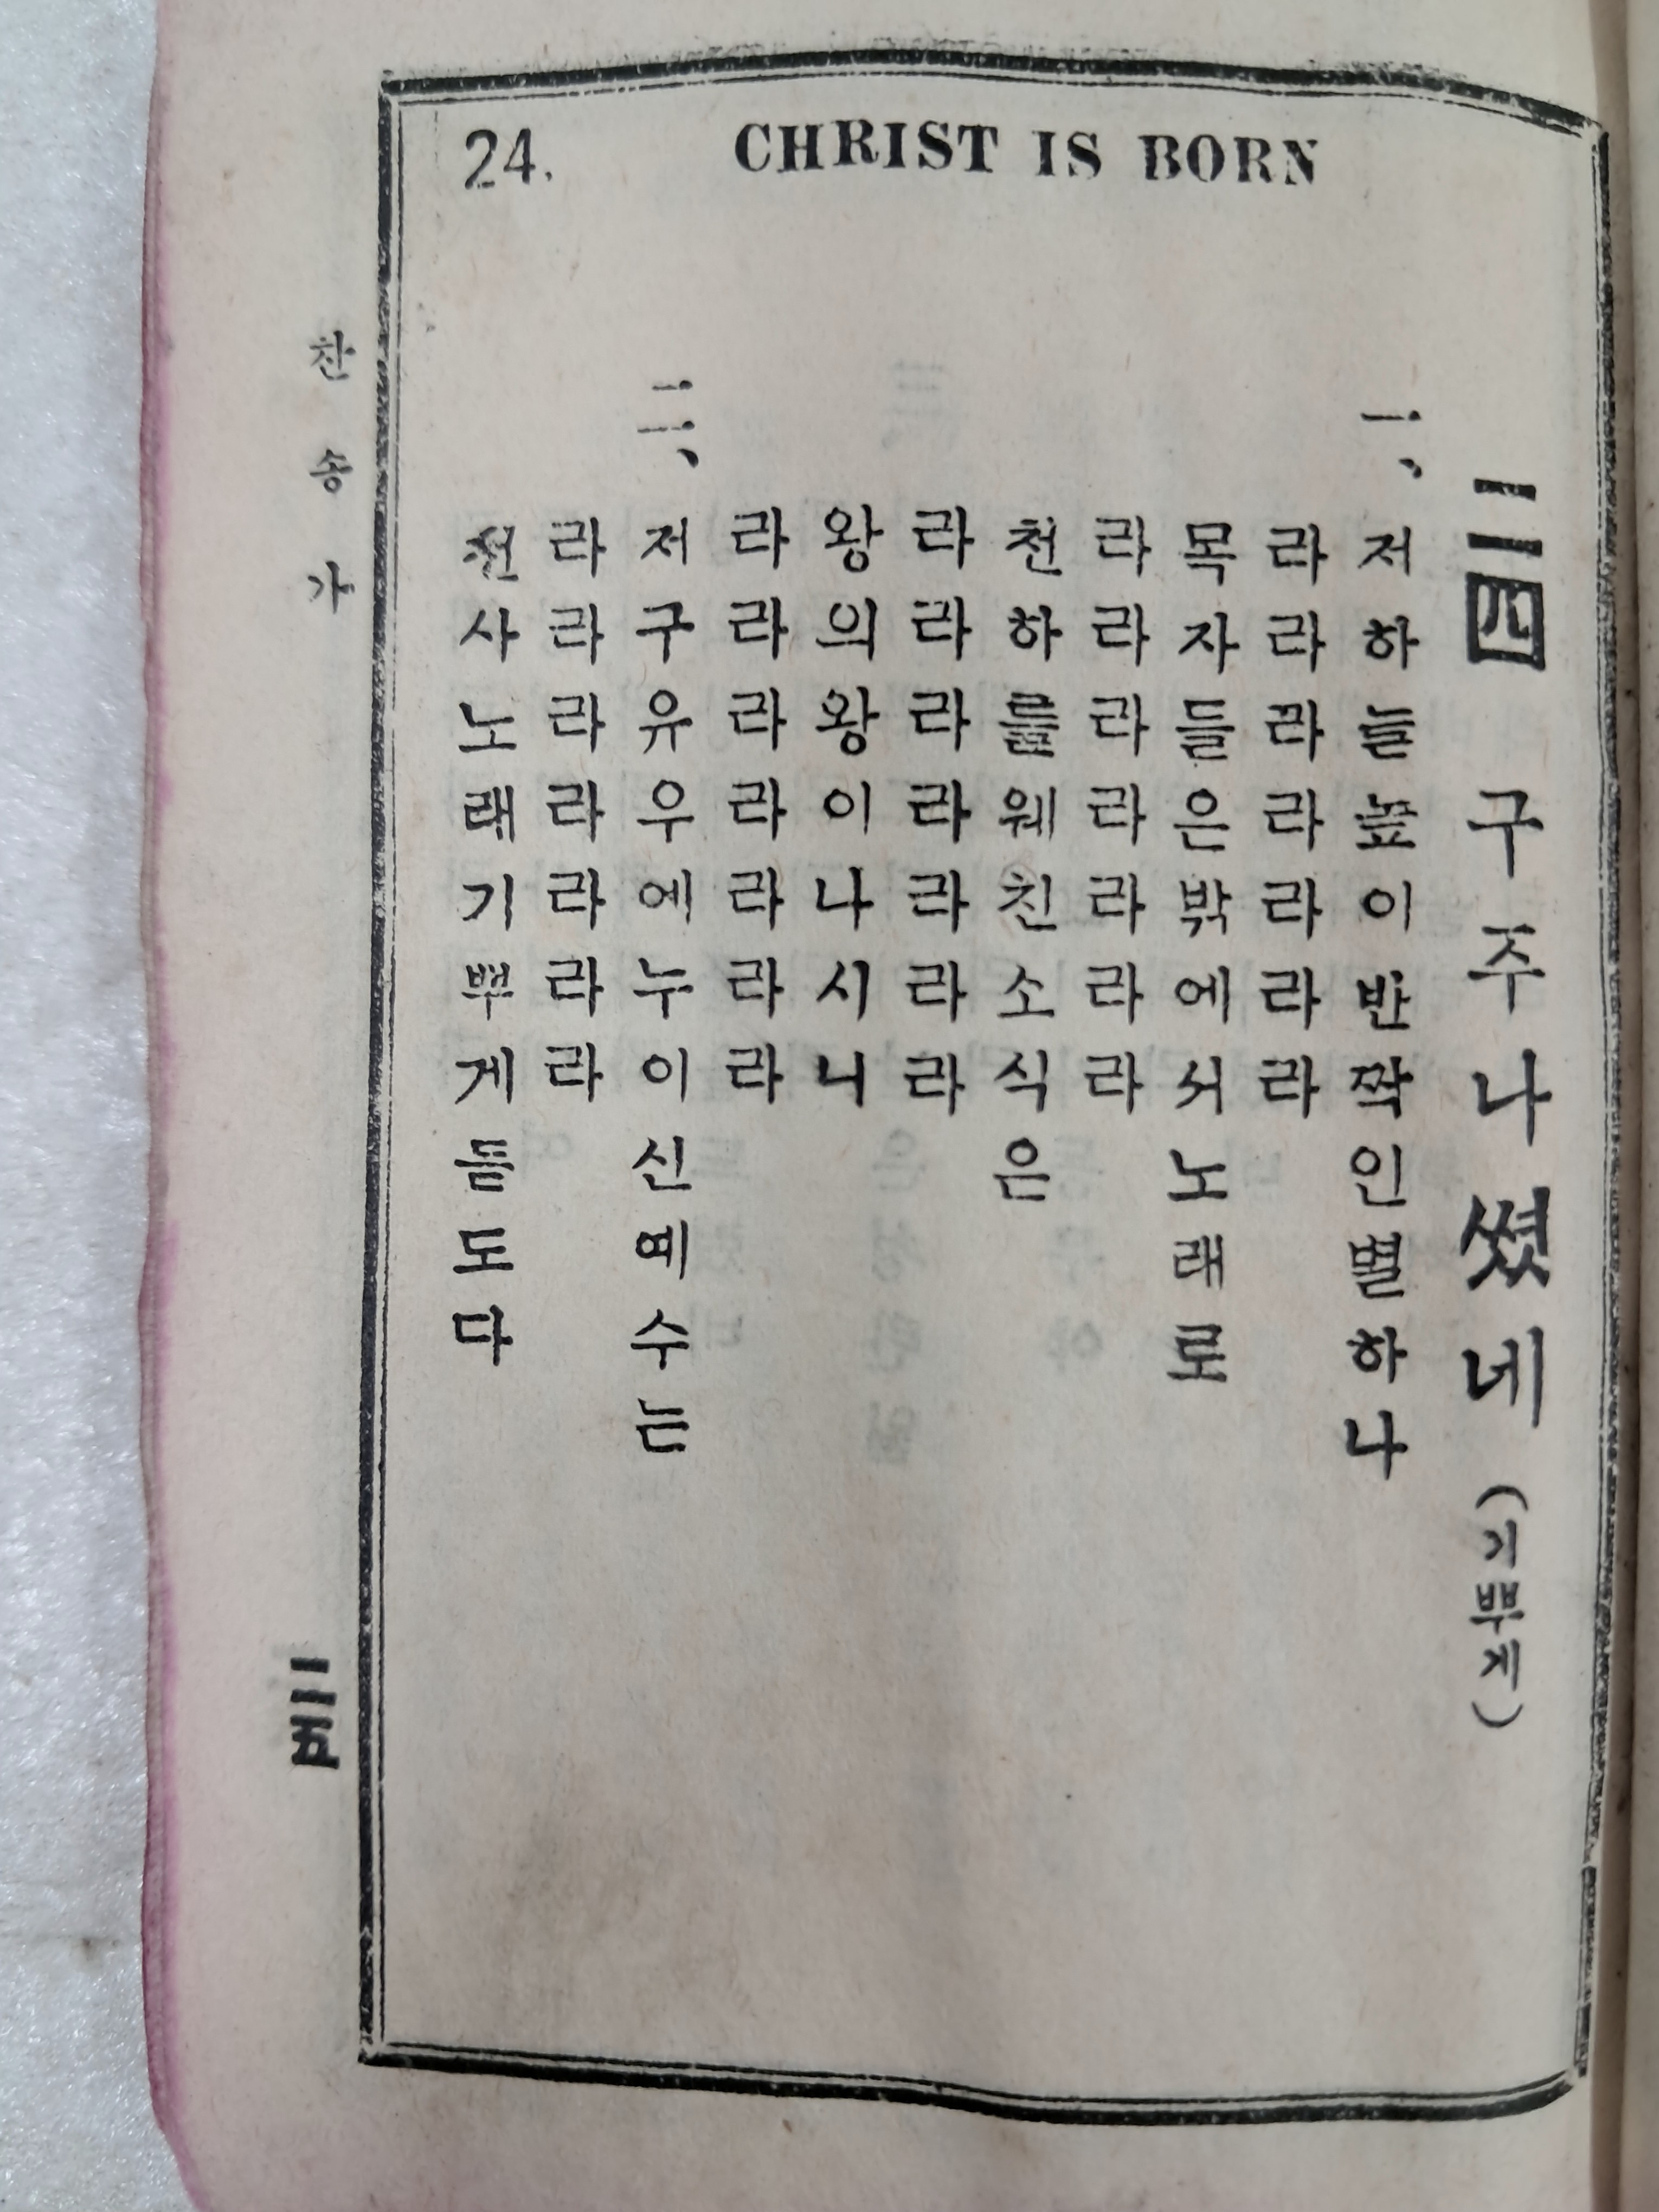 24. CHRIST IS BORN
二四 구주나셨네 (기쁘게)
一、 저하늘높이반짝인별하나
라라라라라라라
목자들은밖에서노래로
라라라라라라라
천하를웨친소식은
라라라라라라라
왕의왕이나시니
라라라라라라라
二、 저구유우에누이신예수는
라라라라라라라
천사노래기쁘게듣도다
찬송가
二五